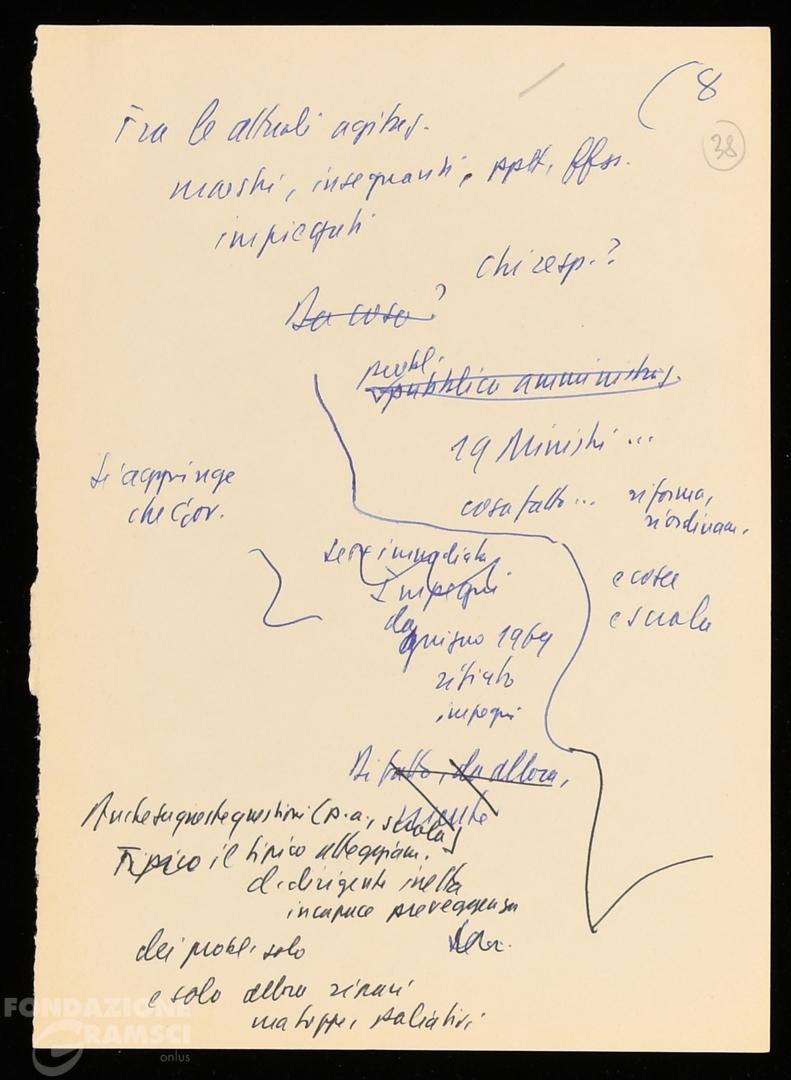 8
38
Tra le attuali agitaz.
maestri, insegnanti, pptt, ffss.
impiegati
Chi resp.?
Da cosa?
probl.
pubblica amministraz.
19 Ministri ...
Si aggiunge
che Gov.
cosa fatto ... riforma,
riordinam.
e case
e scuola
impegni
da
giugno 1969
rifiuto
impegni
Di fatto, da allora,
niente
Anche su queste questioni (p.a., scuola)
Tipico il tipico atteggiam.
di dirigente inetta
incapace preveggenza
dei probl. solo
e solo allora rinvii
ma toppe, paliativi
FONDAZIONE
GRAMSCI
onlus